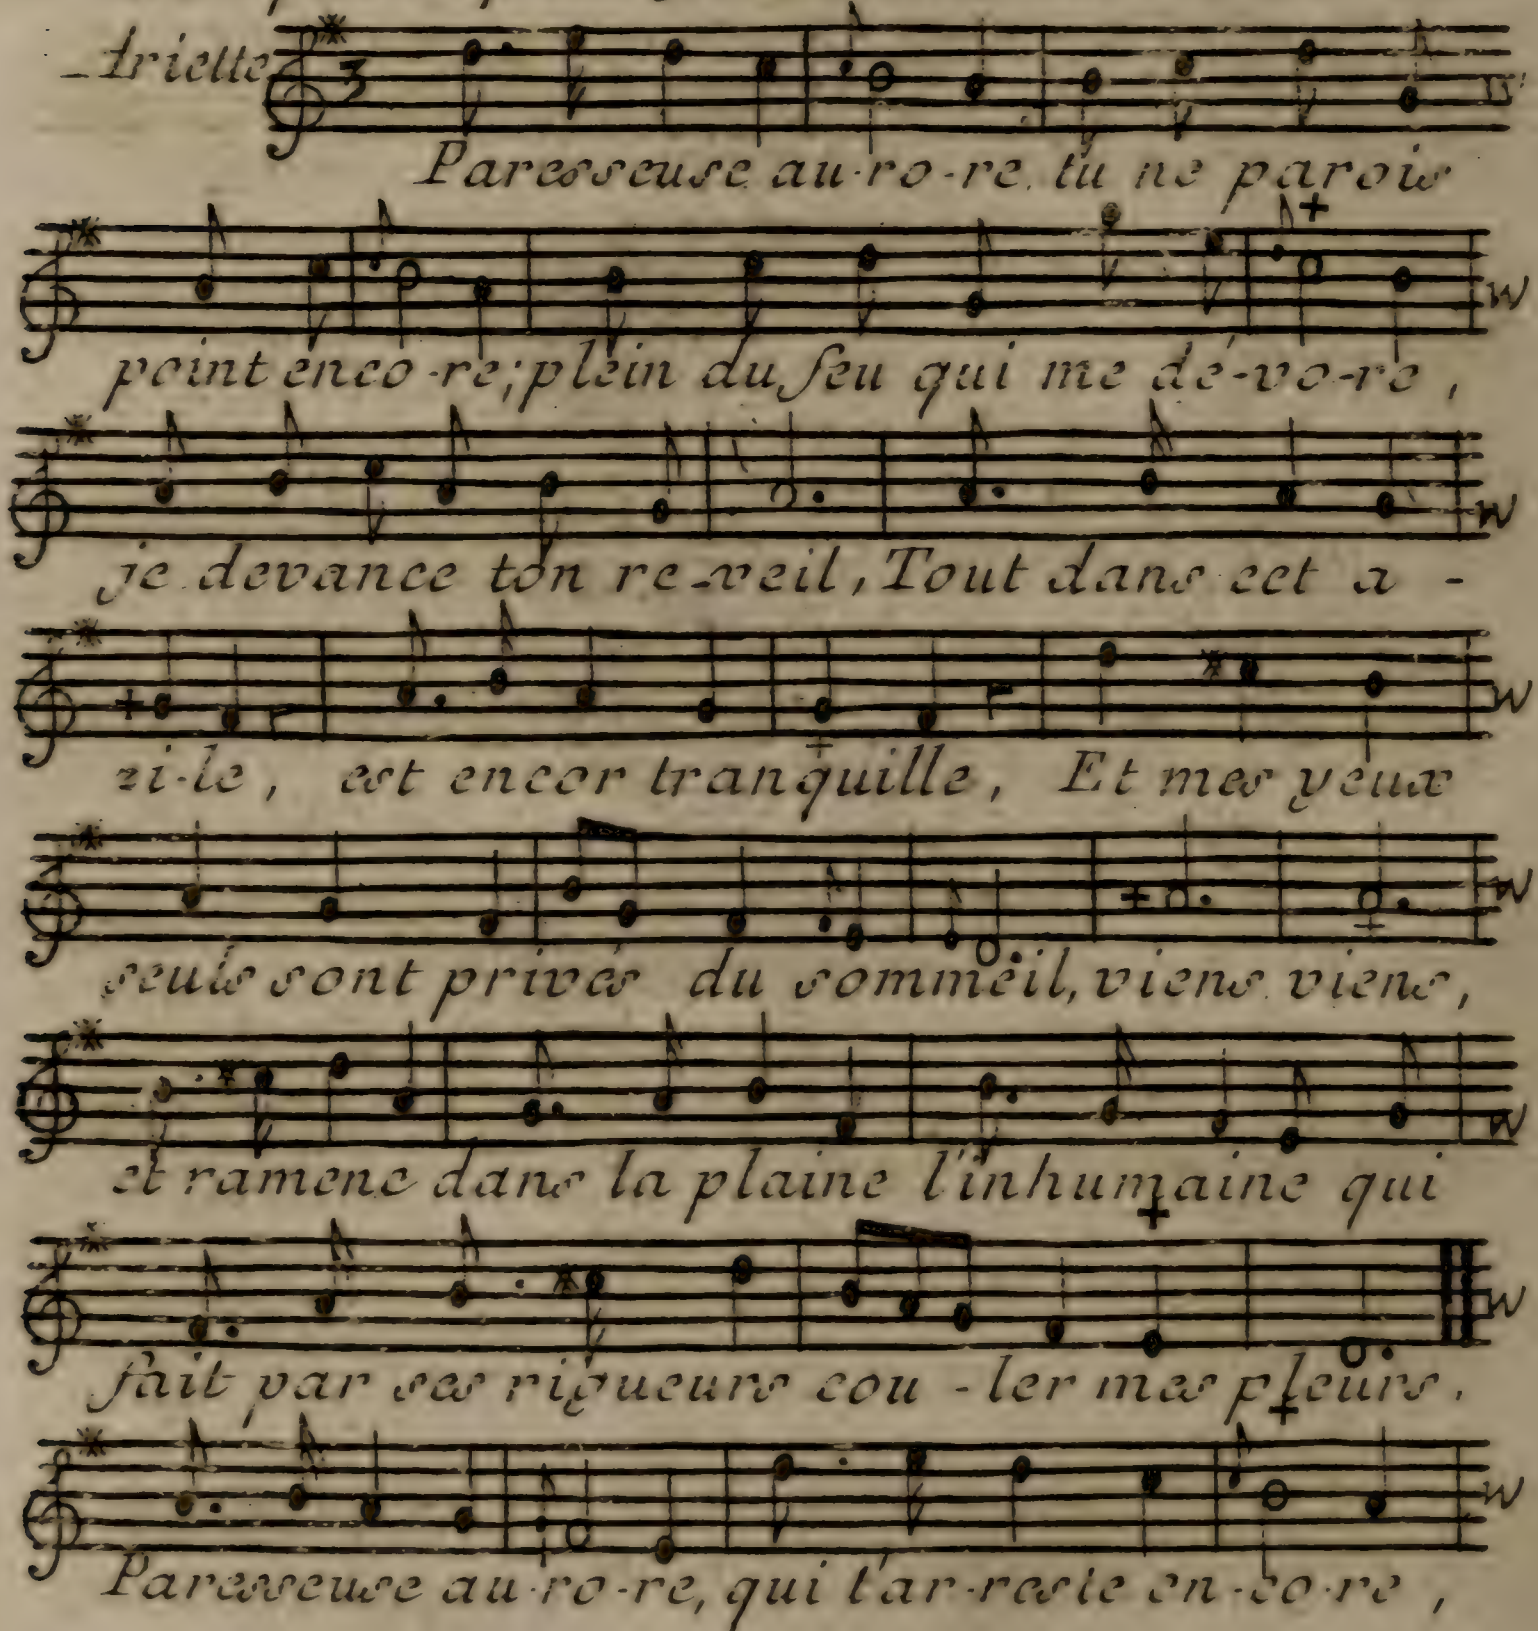 Ariette
Paresseuse au-ro-re tu ne parois
point enco-re; plein du feu qui me dé-vo-re,
je devance ton re-veil, Tout dans cet a-
zi-le, est encor tranquille, Et mes yeux
seuls sont privés du sommeil, viens viens,
et ramene dans la plaine l'inhumaine qui
fait par ses rigueurs cou-ler mes pleurs.
Paresseuse au-ro-re, qui t'ar-reste en-co-re,